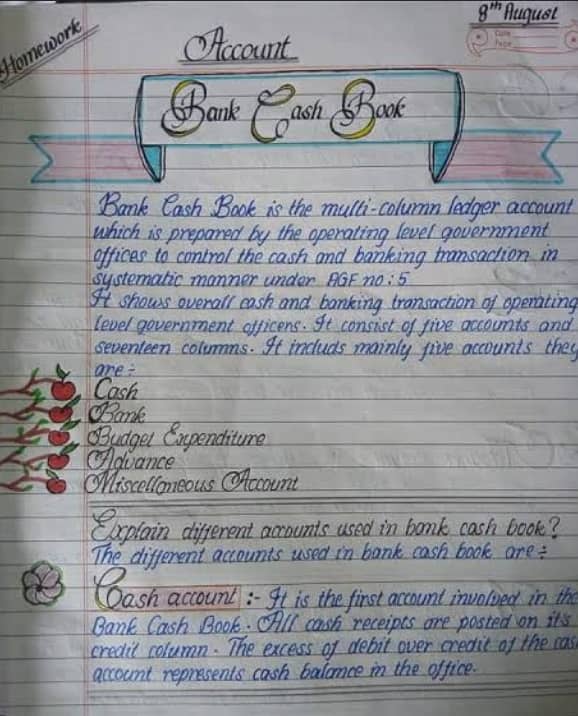 8th August
Homework
Account
Date
Page
Bank Cash Book
Bank Cash Book is the multi-column ledger account
which is prepared by the operating level government
offices to control the cash and banking transaction in
systematic manner under AGF no : 5
It shows overall cash and banking transaction of operating
level government officens. It consist of five accounts and
seventeen columns. It includs mainly five accounts they
are :-
Cash
Bank
Budget Expenditure
Advance
Miscellaneous Account
Explain different accounts used in bank cash book?
The different accounts used in bank cash book are :-
Cash account :- It is the first account involved in the
Bank Cash Book. All cash receipts are posted on it's
credit column. The excess of debit over credit of the cas
account represents cash balance in the office.